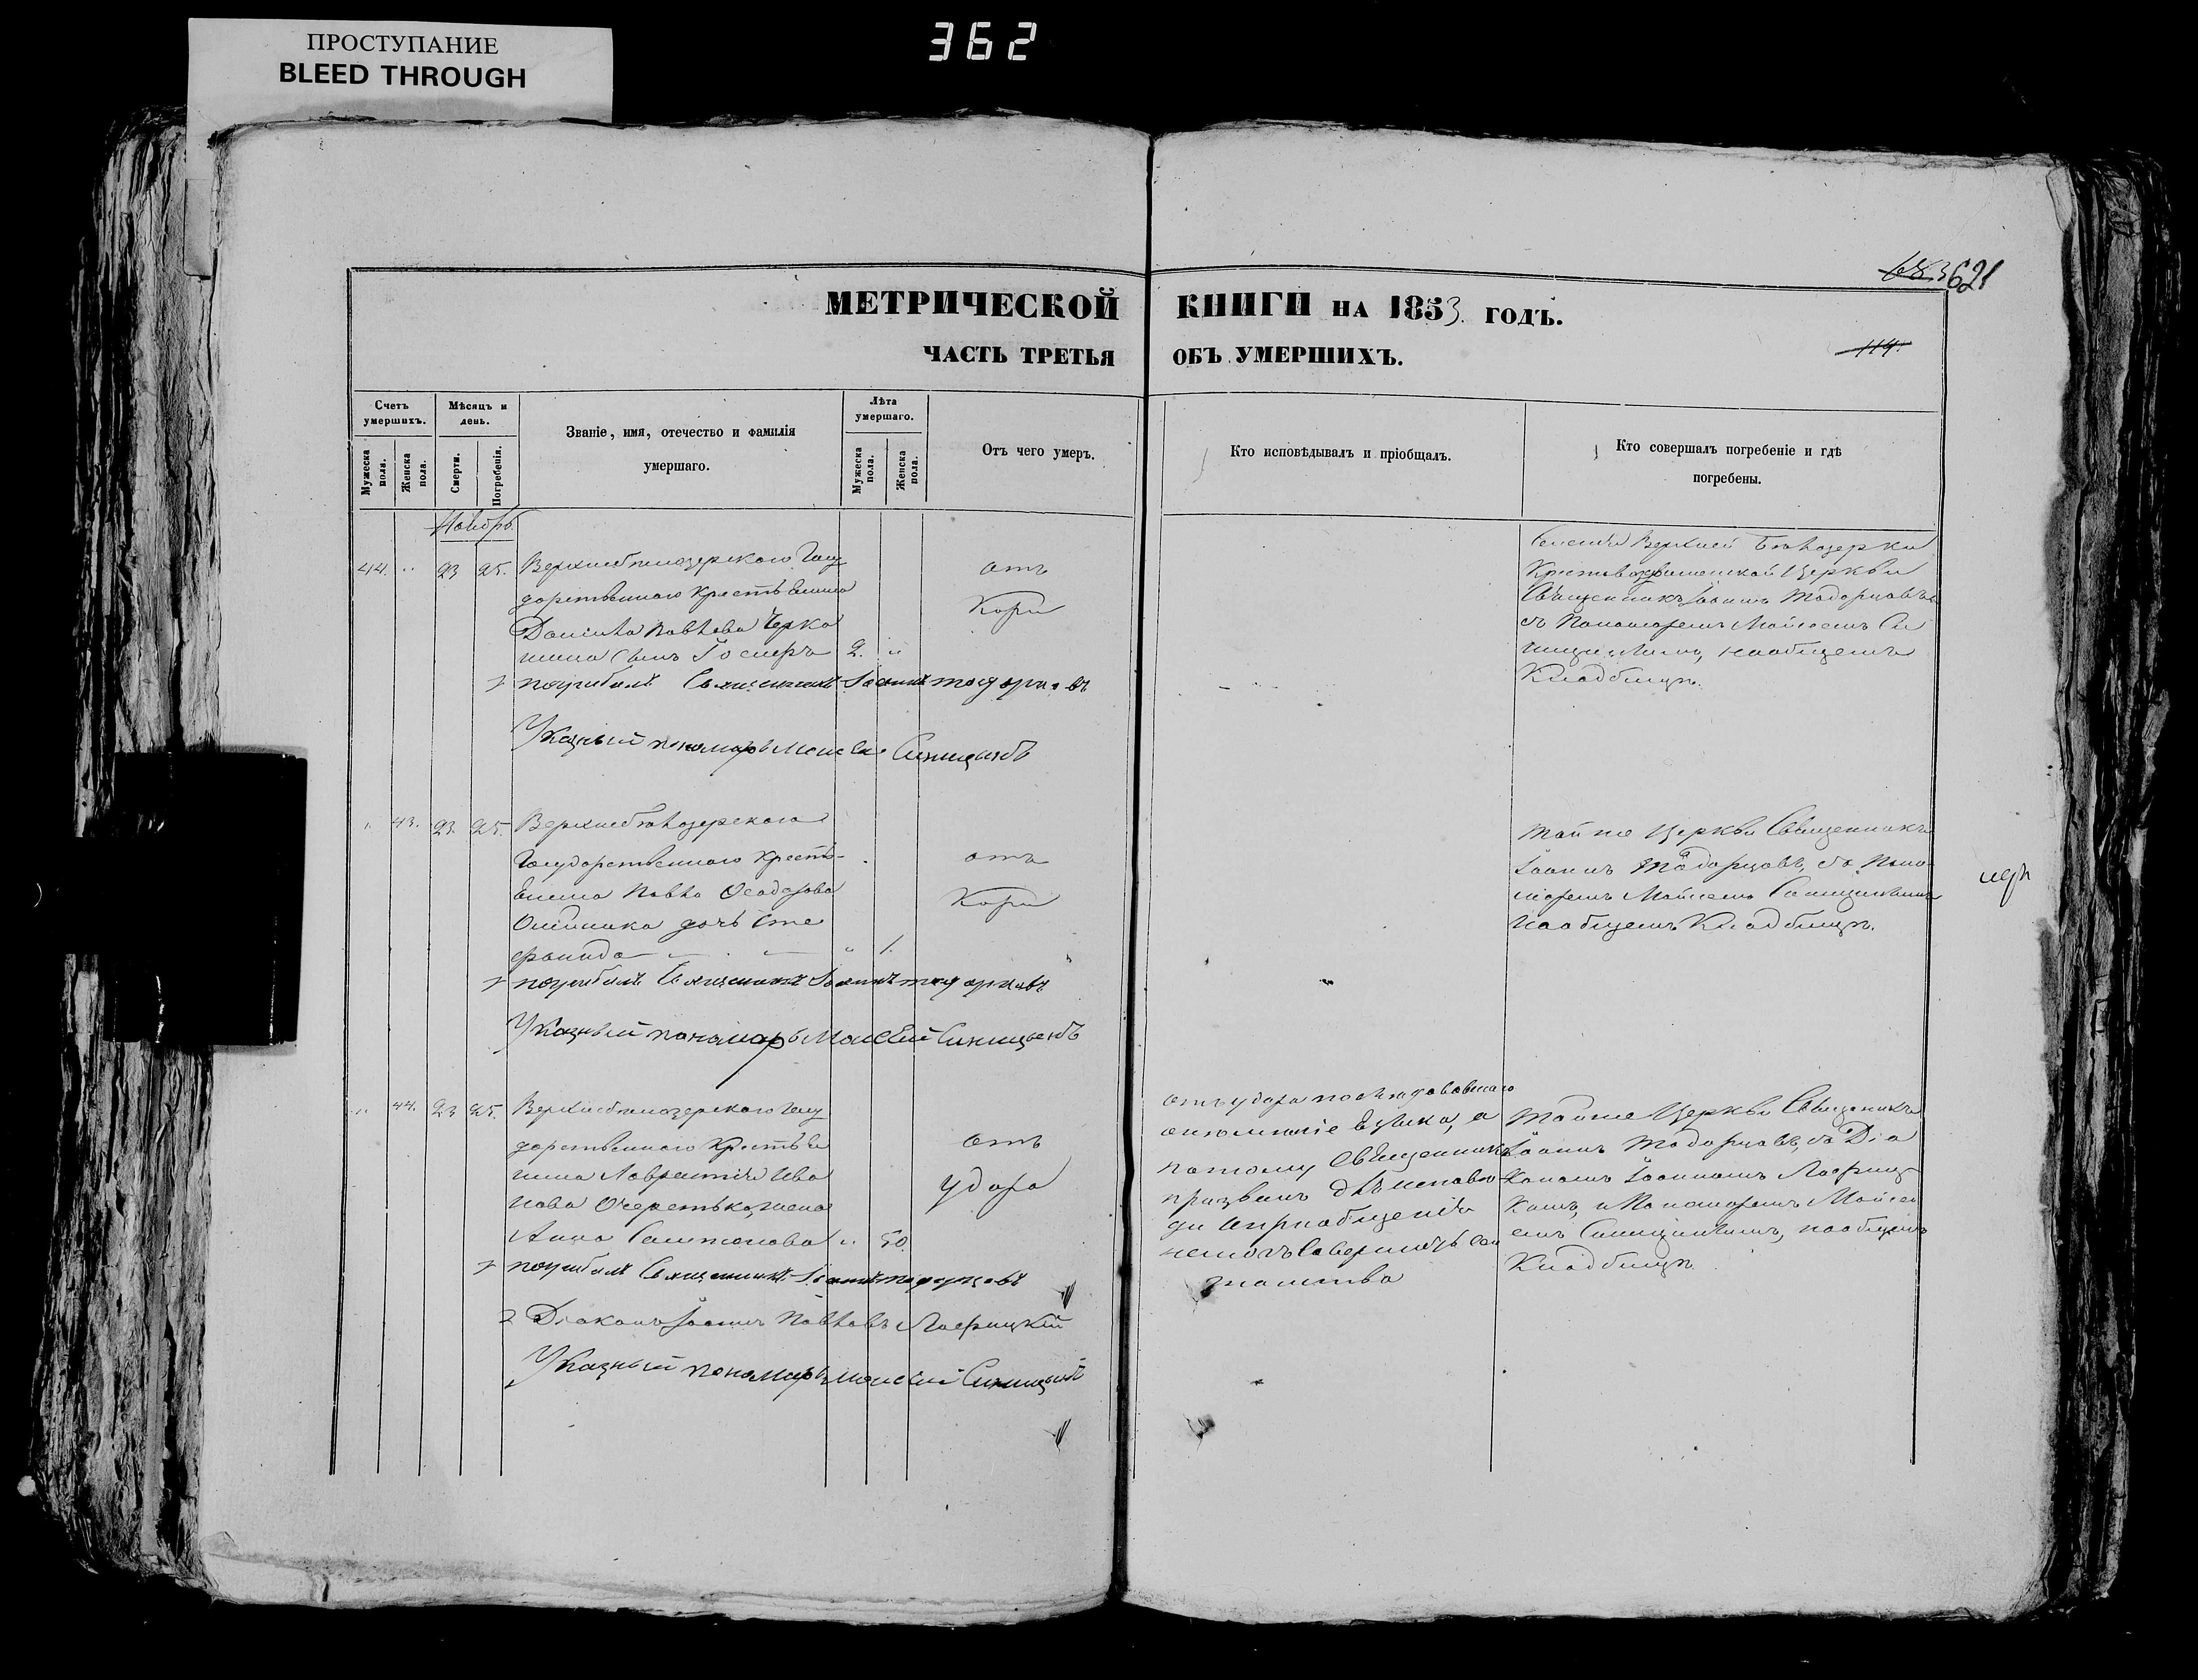 ПРОСТУПАНИЕ
BLEED THROUGH
362
683 621
МЕТРИЧЕСКОЙ КНИГИ НА 1853 ГОДЪ.
ЧАСТЬ ТРЕТЬЯ ОБЪ УМЕРШИХЪ.
114
Счетъ умершихъ.
Мужеска пола.
Женска пола.
Мѣсяцъ и день.
Смерти.
Погребенія.
Званіе, имя, отечество и фамилія
умершаго.
Лѣта умершаго.
Мужеска пола.
Женска пола.
Отъ чего умеръ.
Кто исповѣдывалъ и пріобщалъ.
Кто совершалъ погребеніе и гдѣ
погребены.
Ноябрь.
44. " 23 25. Верхнебѣлозерскаго Госу
дарственнаго Крестьянина
Даніила Павлова
сынъ 2. "
отъ
Кори
погребалъ Священникъ Іоаннъ Тодорцовъ
Указный пономарь Моисей Синицынъ
Селенія Верхней Бѣлозерки
Крестовоздвиженской Церкви
Священникъ Іоаннъ Тодорцовъ
съ Пономаремъ Мойсеемъ Си
на общемъ
Кладбищѣ.
" 43. 23 25. Верхнебѣлозерскаго
Государственнаго Кресть-
янина Павла Ѳеодорова
дочь Сте
фанида " 1.
отъ
Кори
погребалъ Священникъ Іоаннъ Тодорцовъ
Указный пономарь Моисей Синицынъ
Той же Церкви Священникъ
Іоаннъ Тодорцовъ, съ Поно-
маремъ Мойсеемъ Синицынымъ
на общемъ Кладбищѣ.
" 44. 23 25. Верхнебѣлозерскаго Госу
дарственнаго Крестья
нина Лаврентія Ива
нова жена
Анна " 50.
отъ
удара
погребалъ Священникъ Іоаннъ Тодорцовъ
Діаконъ Іоаннъ Павловъ
Указный пономарь Моисей Синицынъ
отъ удара послѣдовавшаго
онемѣніе языка, а
потому Священникъ
призванъ для исповѣ
ди и пріобщенія
немогъ совершить сего
таинства
Той же Церкви Священникъ
Іоаннъ Тодорцовъ, съ Діа
кономъ Іоанномъ
и Пономаремъ Мойсе
емъ Синицынымъ, на общемъ
Кладбищѣ